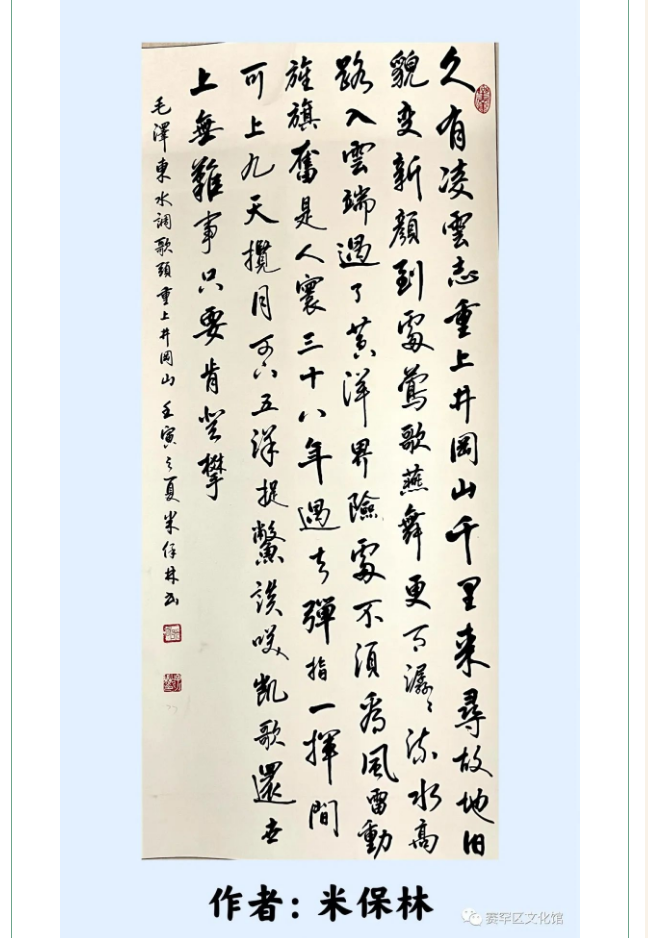 久有凌雲志重上井岡山千里来尋故地旧
貌变新顔到處鶯歌燕舞更有潺々流水高
路入雲端過了黄洋界險處不須看風雷動
旌旗奮是人寰三十八年過去彈指一揮間
可上九天攬月可下五洋捉鱉談笑凱歌還世
上無難事只要肯登攀
毛澤東水調歌頭重上井岡山 壬寅之夏米保林书
作者：米保林
赛罕区文化馆